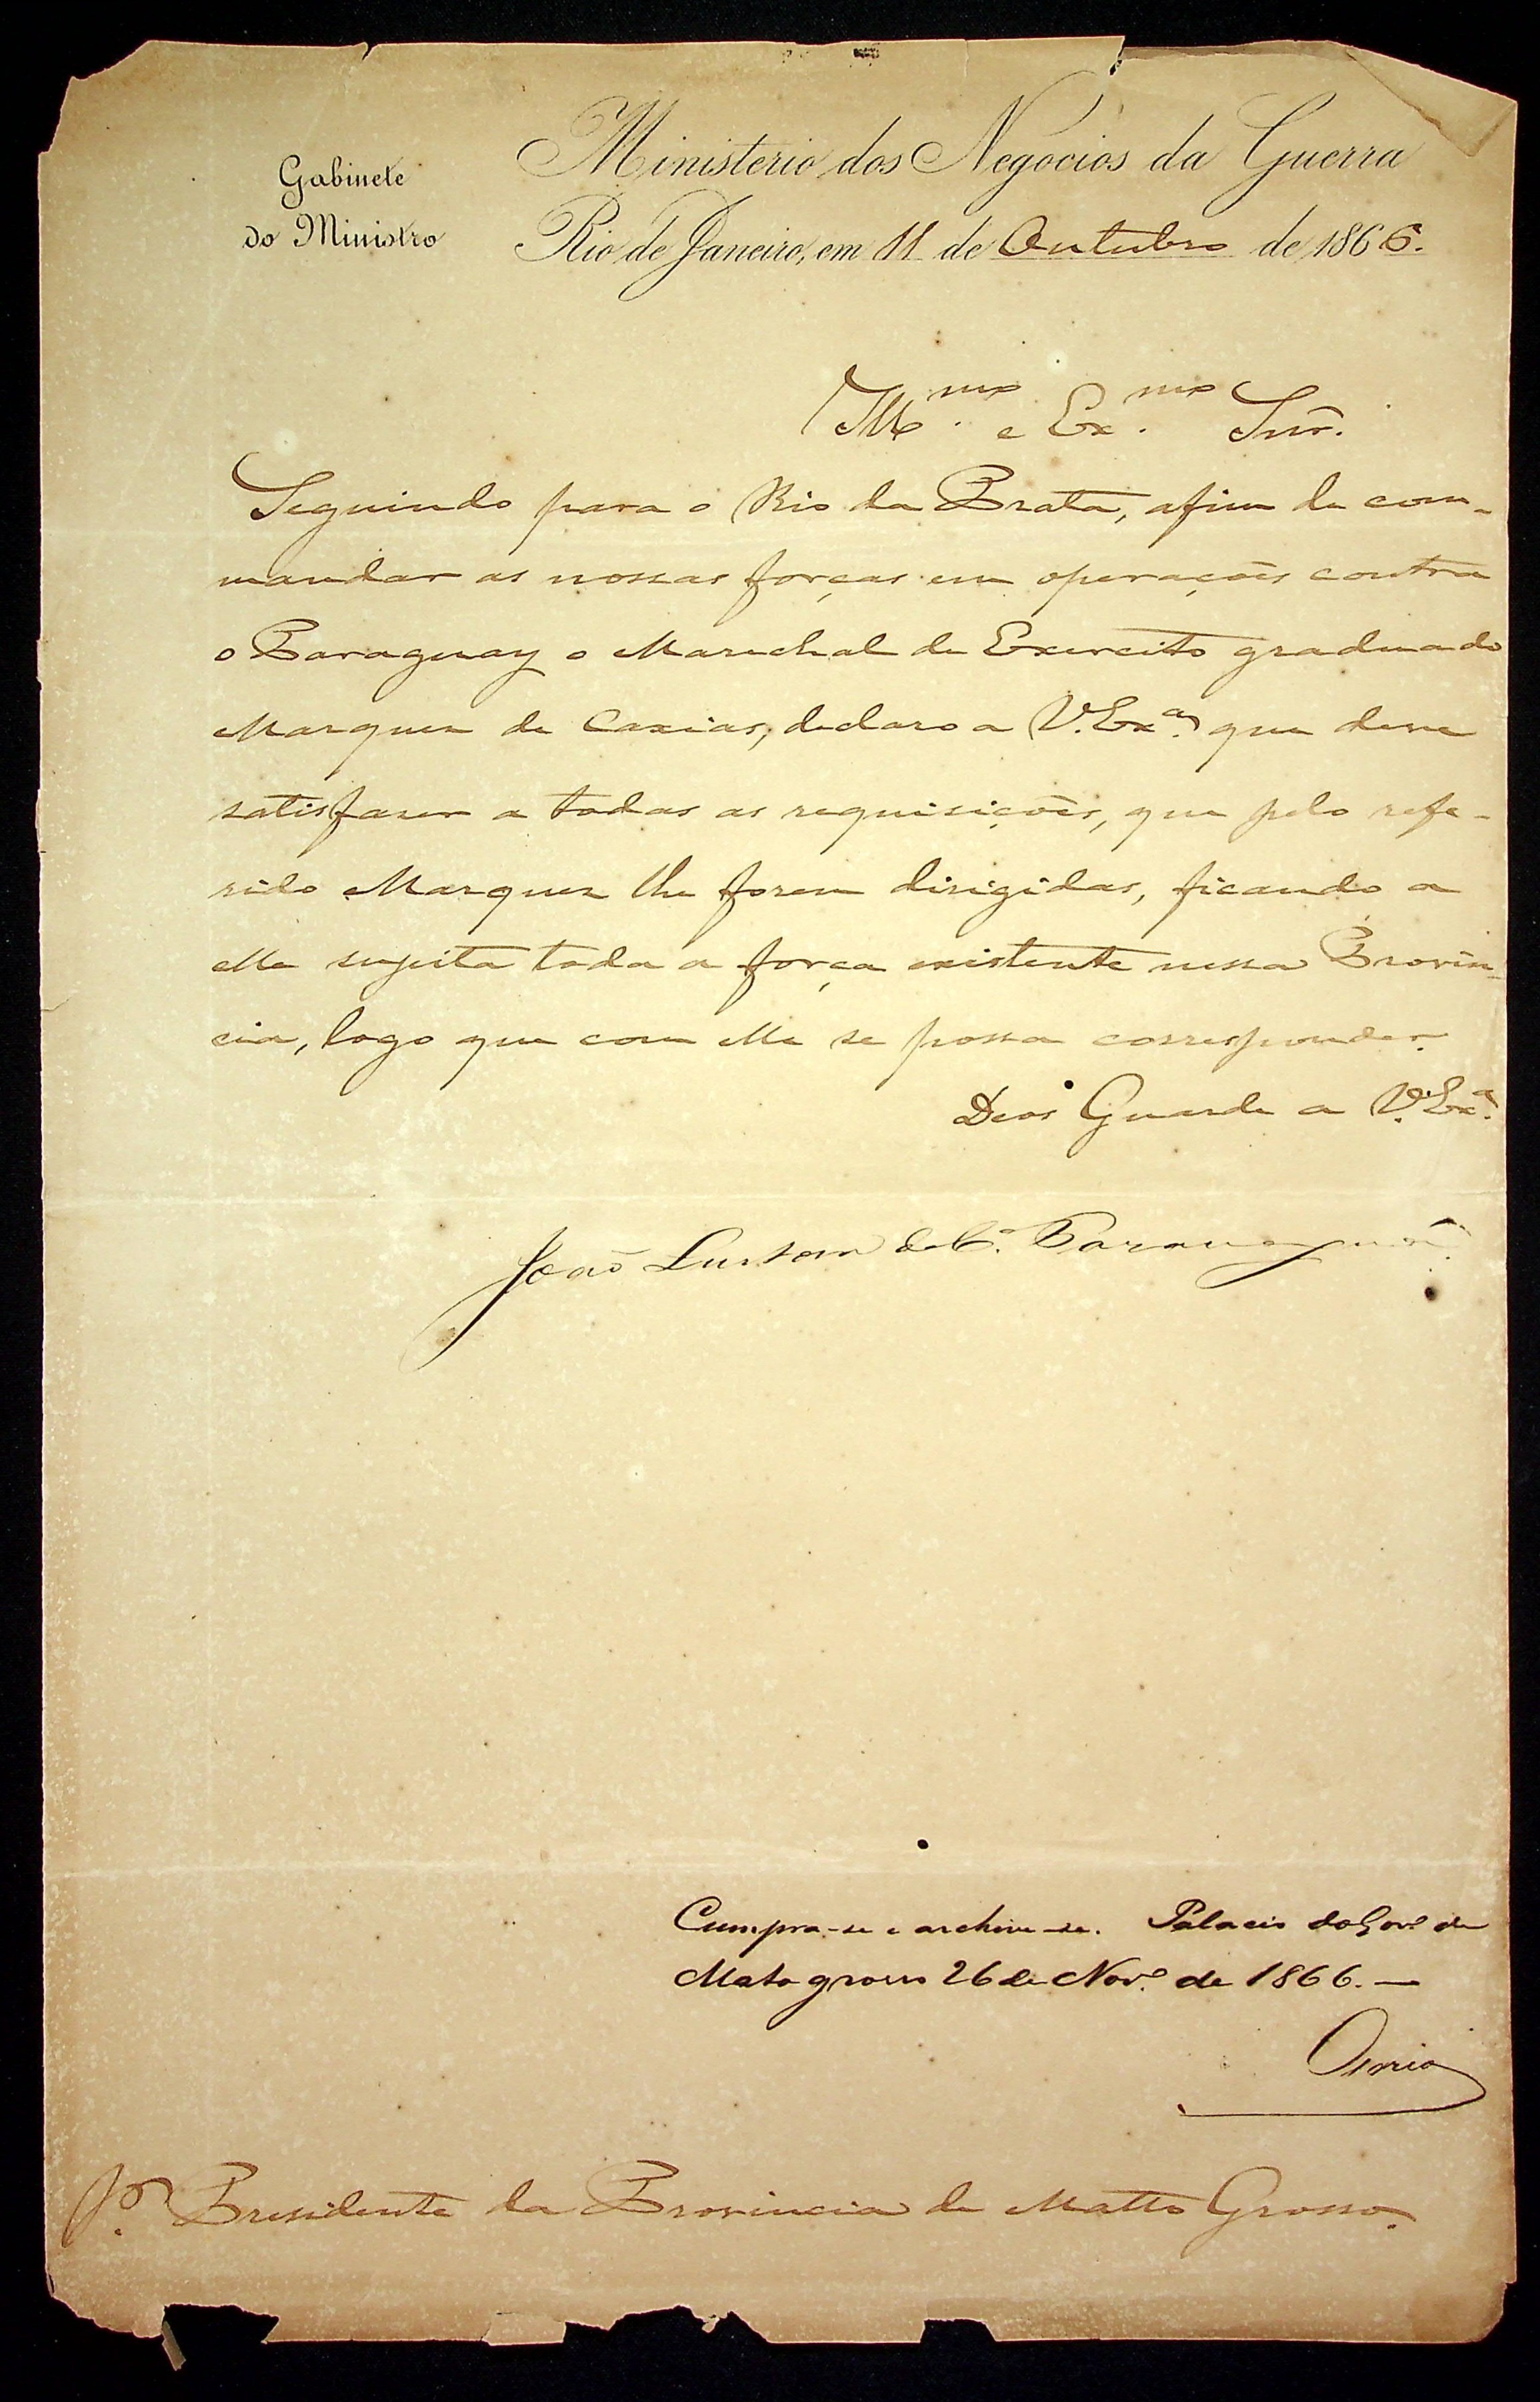 Gabinete
do Ministro
Ministerio dos Negocios da Guerra
Rio de Janeiro, em 11 de Outubro de 1866.
Ill.mo e Ex.mo Snr.
Seguindo para o Rio da Prata, afim de com-
mandar as nossas forças em operações contra
o Paraguay o Marechal de Exercito graduado
Marquez de Caxias, declaro a V. Ex.a que deve
satisfazer a todas as requisições, que pelo refe-
rido Marquez lhe forem dirigidas, ficando a
elle sugeita toda a força existente nessa Provin-
cia, logo que com elle se possa corresponder.
Deos Guarde a V. Ex.a
João Lustosa da C.a Paranaguá
Cumpra-se e archive-se. Palacio do Gov.o de
Mato grosso 26 de Nov.o de 1866. —
Osorio
Presidente da Provincia de Matto Grosso.